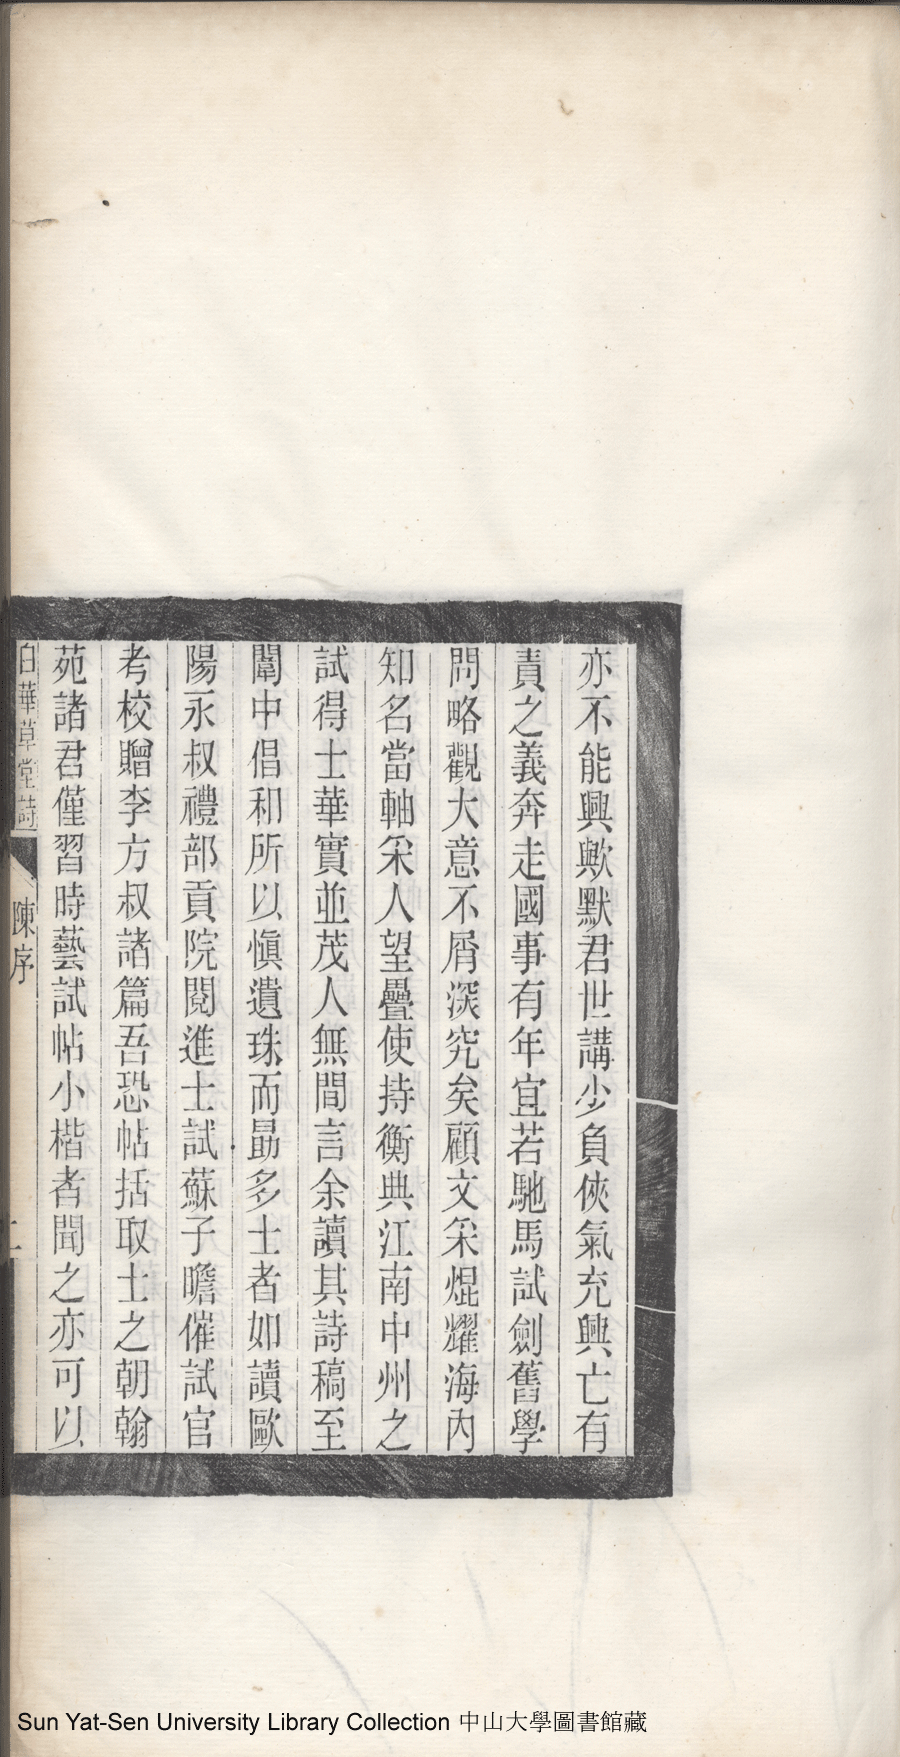 亦不能興歟默君世講少負俠氣充興亡有
責之義奔走國事有年宜若馳馬試劍舊學
問略觀大意不屑深究矣顧文采焜耀海內
知名當軸采人望疊使持衡典江南中州之
試得士華實並茂人無間言余讀其詩稿至
闈中倡和所以慎遺珠而勗多士者如讀歐
陽永叔禮部貢院閱進士試蘇子瞻催試官
考校贈李方叔諸篇吾恐帖括取士之朝翰
苑諸君僅習時藝試帖小楷者聞之亦可以
白華草堂詩 陳序
Sun Yat-Sen University Library Collection 中山大學圖書館藏